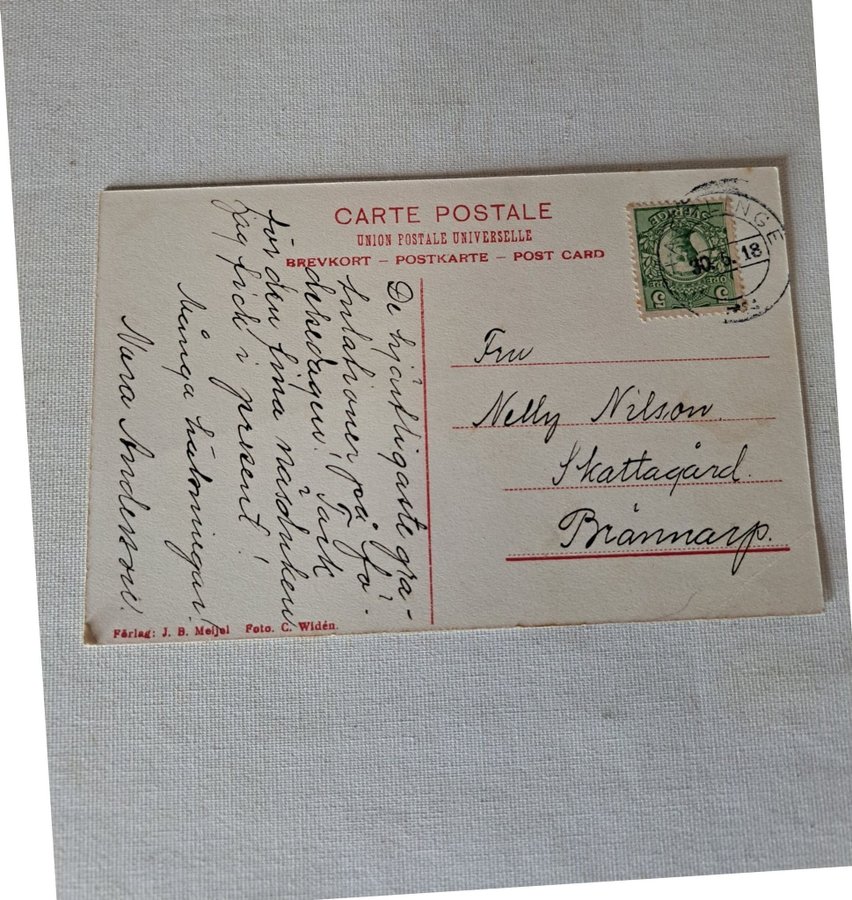 CARTE POSTALE
UNION POSTALE UNIVERSELLE
BREVKORT – POSTKARTE – POST CARD
De hjärtligaste gra-
tulationer på fö-
delsedagen! Tack
för den fina näsduken
jag fick i present!
Många hälsningar!
Nara Andersson.
Fru
Nelly Nilson.
Skattagård.
Brännarp.
SVERIGE
5
30.5.18
Förlag: J. B. Meijel Foto. C. Widén.